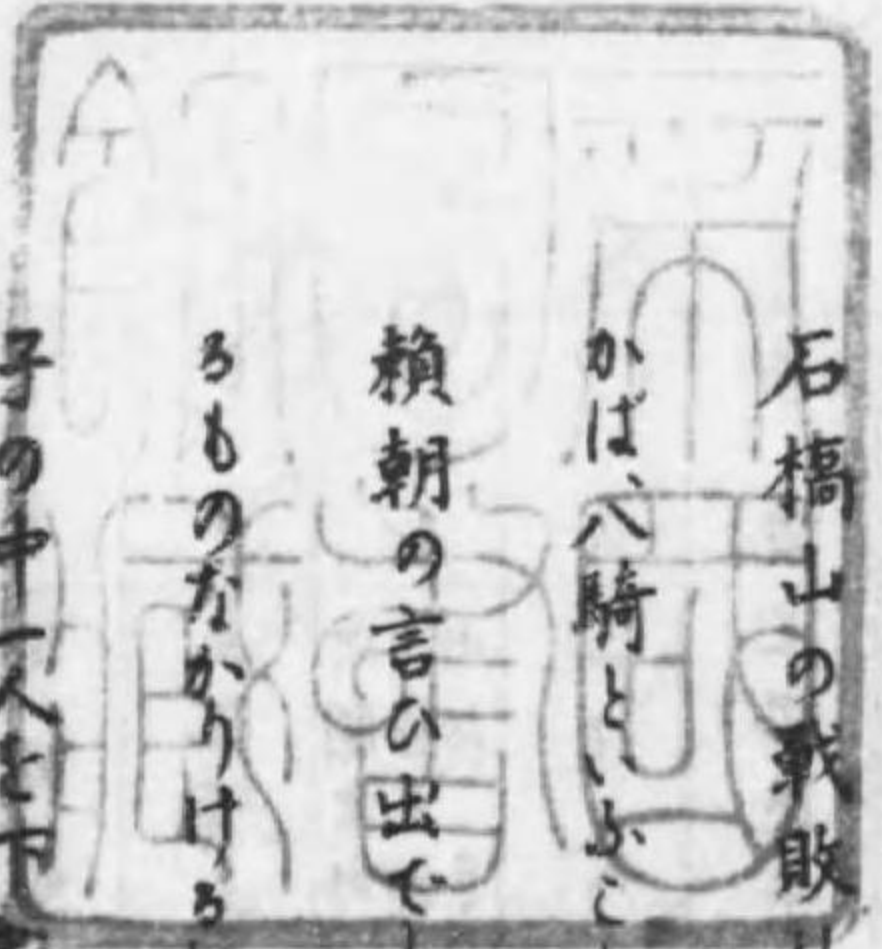 石橋山の戦敗
かば、八騎といふこ
頼朝の言ひ出で
るものなかりける
子の中一人を下